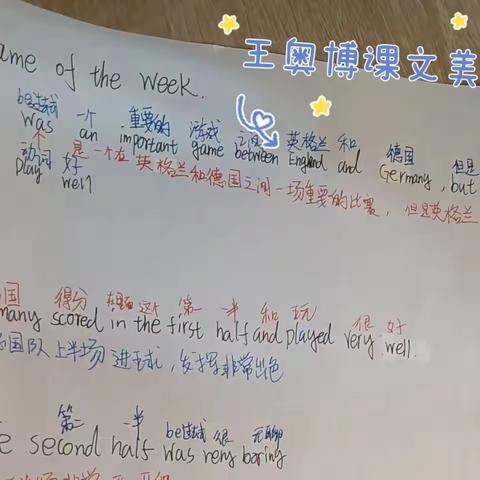 王奥博课文美
ame of the week.
be过去式 一个 重要的 游戏 之间 英格兰 和 德国 但是
was an important game between England and Germany, but
个 是一个在英格兰和德国之间一场重要的比赛，但是英格兰
动词 好
play well
国 得分 这个 第一 半 和 玩 很 好
many scored in the first half and played very well.
国队上半场进球，发挥非常出色
第二 半 be过去式 很
e second half was very boring